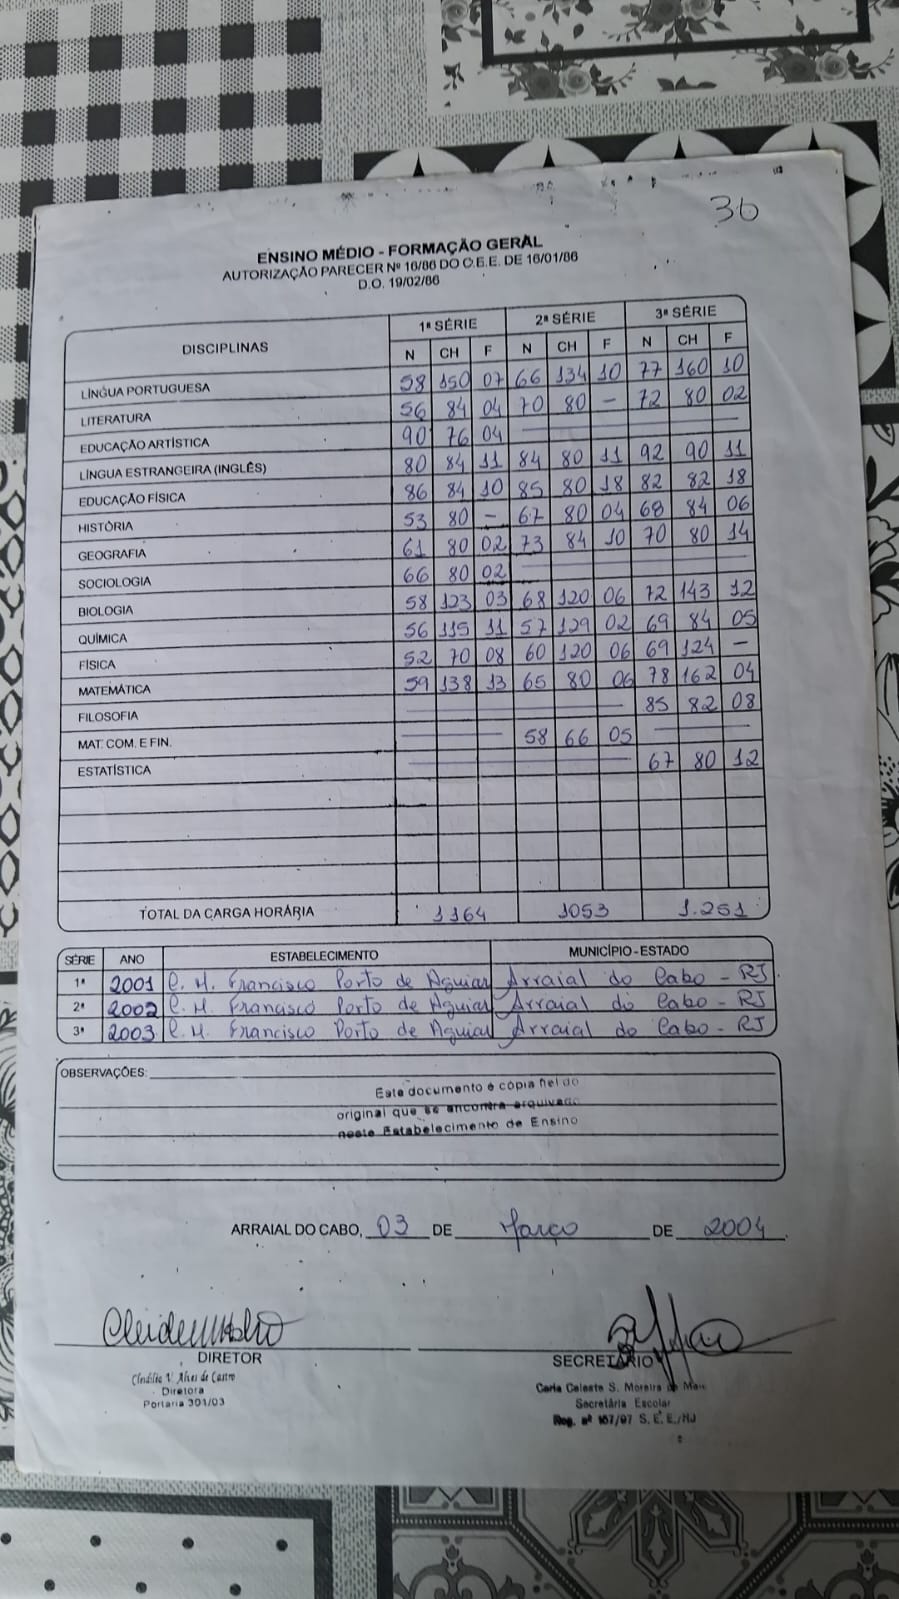 36
ENSINO MÉDIO - FORMAÇÃO GERAL
AUTORIZAÇÃO PARECER Nº 16/86 DO C.E.E. DE 16/01/86
D.O. 19/02/86
DISCIPLINAS 1ª SÉRIE 2ª SÉRIE 3ª SÉRIE
N CH F N CH F N CH F
LÍNGUA PORTUGUESA 58 150 07 66 134 10 77 160 10
LITERATURA 56 84 04 70 80 - 72 80 02
EDUCAÇÃO ARTÍSTICA 90 76 04
LÍNGUA ESTRANGEIRA (INGLÊS) 80 84 11 84 80 11 92 90 11
EDUCAÇÃO FÍSICA 86 84 10 85 80 18 82 82 18
HISTÓRIA 53 80 - 67 80 04 68 84 06
GEOGRAFIA 61 80 02 73 84 10 70 80 14
SOCIOLOGIA 66 80 02
BIOLOGIA 58 123 03 68 120 06 72 143 12
QUÍMICA 56 115 11 57 129 02 69 84 05
FÍSICA 52 70 08 60 120 06 69 124 -
MATEMÁTICA 59 138 13 65 80 06 78 162 04
FILOSOFIA 85 82 08
MAT. COM. E FIN. 58 66 05
ESTATÍSTICA 67 80 12
TOTAL DA CARGA HORÁRIA 1164 1053 1.251
SÉRIE ANO ESTABELECIMENTO MUNICÍPIO-ESTADO
1ª 2001 C. M. Francisco Porto de Aguiar Arraial do Cabo - RJ
2ª 2002 C. M. Francisco Porto de Aguiar Arraial do Cabo - RJ
3ª 2003 C. M. Francisco Porto de Aguiar Arraial do Cabo - RJ
OBSERVAÇÕES:
Este documento é cópia fiel do
original que se encontra arquivado
neste Estabelecimento de Ensino
ARRAIAL DO CABO, 03 DE Março DE 2004.
DIRETOR
V. Alves de Castro
Diretora
Portaria 301/03
SECRETÁRIO
Carla Celeste S. Moreira
Secretária Escolar
Reg. nº 167/97 S. E. E./RJ